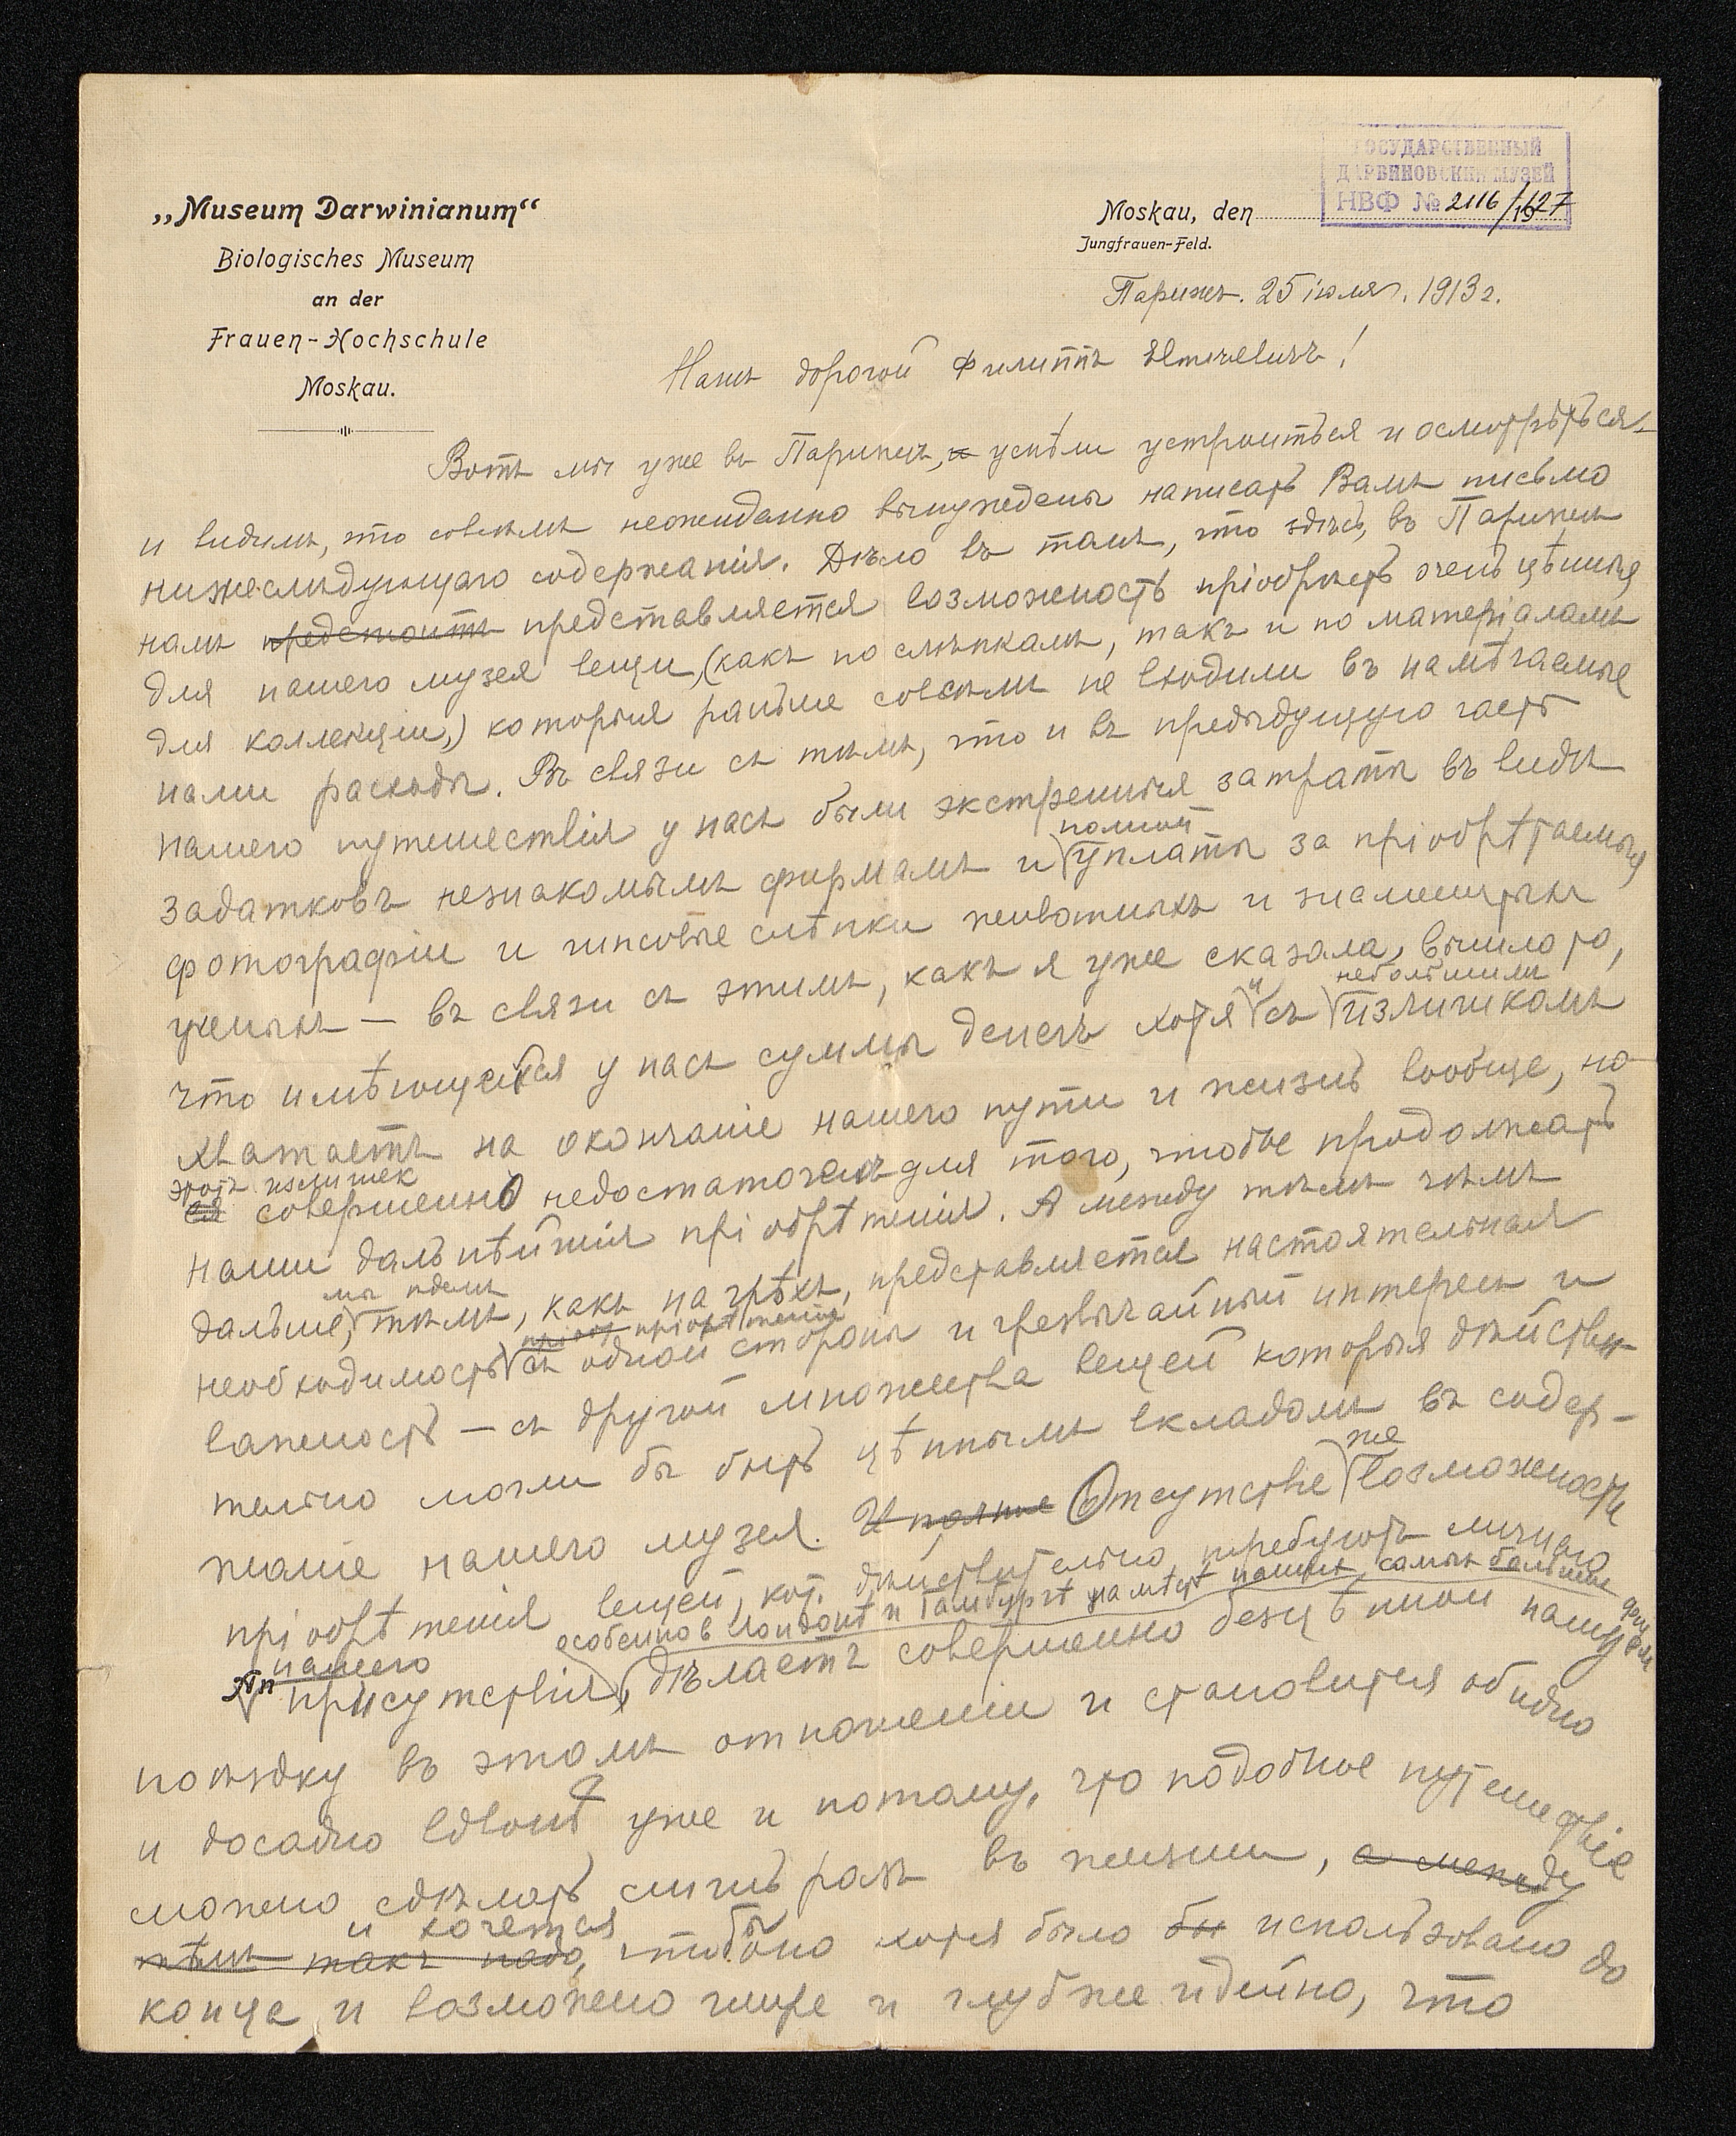 „Museum Darwinianum“
Biologisches Museum
an der
Frauen-Hochschule
Moskau.
ГОСУДАРСТВЕННЫЙ
ДАРВИНОВСКИЙ МУЗЕЙ
НВФ № 2116/627
Moskau, den
Jungfrauen-Feld.
Парижъ. 25 іюля. 1913 г.
Нашъ дорогой Филиппъ
Вотъ мы уже въ Парижѣ, и успѣли устроиться и осмотрѣться
и видимъ, что совсѣмъ неожиданно вынуждены написать Вамъ письмо
нижеслѣдующаго содержанія. Дѣло въ томъ, что здѣсь, въ Парижѣ
намъ предстоитъ представляется возможность пріобрѣсть очень цѣнныя
для нашего музея вещи, (какъ по слѣпкамъ, такъ и по матеріаламъ
для коллекціи,) которыя раньше совсѣмъ не входили въ намѣчаемые
нами расходы. Въ связи съ тѣмъ, что и въ предыдущую часть
нашего путешествія у насъ были экстренныя затраты въ видѣ
полной
задатковъ незнакомымъ фирмамъ и уплаты за пріобрѣтаемыя
фотографіи и гипсовые слѣпки животныхъ и знаменитыхъ
ученыхъ — въ связи съ этимъ, какъ я уже сказала, вышло то,
и небольшимъ
что имѣющейся у насъ суммы денегъ хотя съ излишкомъ
хватаетъ на окончаніе нашего пути и жизнь вообще, но
этотъ излишек
ея совершенно недостаточенъ для того, чтобы продолжать
наши дальнѣйшія пріобрѣтенія. А между тѣмъ чѣмъ
мы идемъ
дальше, тѣмъ, какъ на грѣхъ, представляется настоятельная
пріобрѣтенія
необходимость съ одной стороны и чрезвычайный интересъ и
важность — съ другой множества вещей которыя дѣйстви-
тельно могли бы быть цѣннымъ вкладомъ въ содер-
же
жаніе нашего музея. И полное Отсутствіе возможности
пріобрѣтенія вещей, кот. дѣйствительно требуютъ личнаго
особенно в Лондонѣ и Гамбургѣ гдѣ самыя большія фирмы
нашего
присутствія, дѣлаетъ совершенно безцѣнной нашу
поѣздку въ этомъ отношеніи и становится обидно
и досадно вдвойнѣ уже и потому, что подобное путешествіе
можно сдѣлать лишь разъ въ жизни, а между
и хочется
тѣмъ такъ надо, чтобы оно хотя было бы использовано до
конца и возможно шире и глубже идейно, что